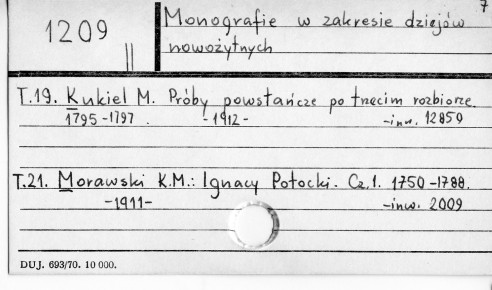 7
1209
||
Monografie w zakresie dziejów
nowożytnych
T.19. Kukiel M. Próby powstańcze po trzecim rozbiorze.
1795-1797. -1912- -inw. 12859
T.21. Morawski K.M.: Ignacy Potocki. Cz. 1. 1750-1788.
-1911- -inw. 2009
DUJ. 693/70. 10 000.